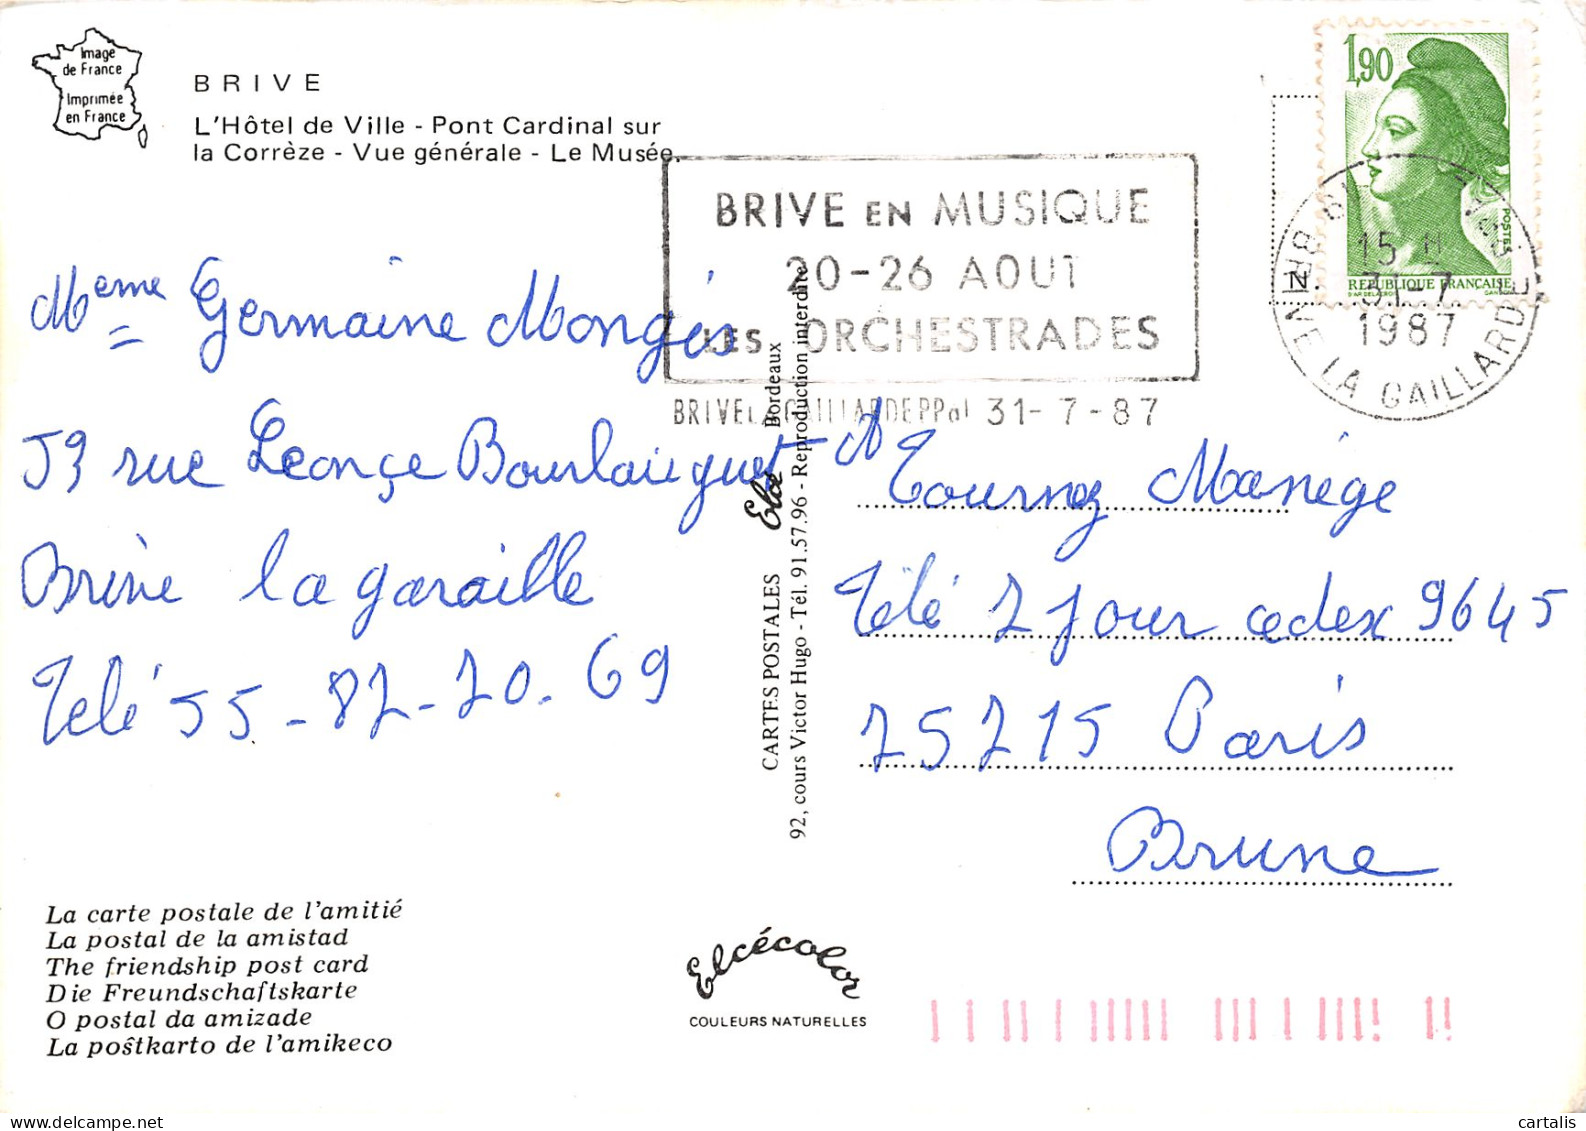 Image
de France
Imprimée
en France
BRIVE
L'Hôtel de Ville - Pont Cardinal sur
la Corrèze - Vue générale - Le Musée.
1,90
POSTES
REPUBLIQUE FRANÇAISE
BRIVE EN MUSIQUE
20-26 AOUT
LES ORCHESTRADES
BRIVE LA GAILLARDE PPal 31-7-87
15 H
31-7
1987
BRIVE LA GAILLARDE
Meme Germaine Mongès
59 rue Leonçe Bourlaiguet
Brive la garaille
Télé 55-82-20.69
Tournez Manège
Télé 7 Jour cedex 9645
75215 Paris
Brune
CARTES POSTALES Elcé Bordeaux
92, cours Victor Hugo - Tél. 91.57.96 - Reproduction interdite
La carte postale de l'amitié
La postal de la amistad
The friendship post card
Die Freundschaftskarte
O postal da amizade
La poŝtkarto de l'amikeco
Elcécolor
COULEURS NATURELLES
cartalis